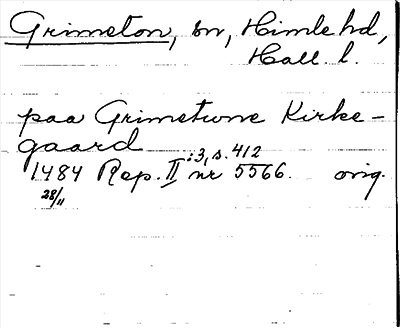 Grimeton, sn, Himle hd,
Hall. l.
paa Grimetwne Kirke-
gaard
1484 Rep. II :3, s. 412 nr 5566. orig.
28/11